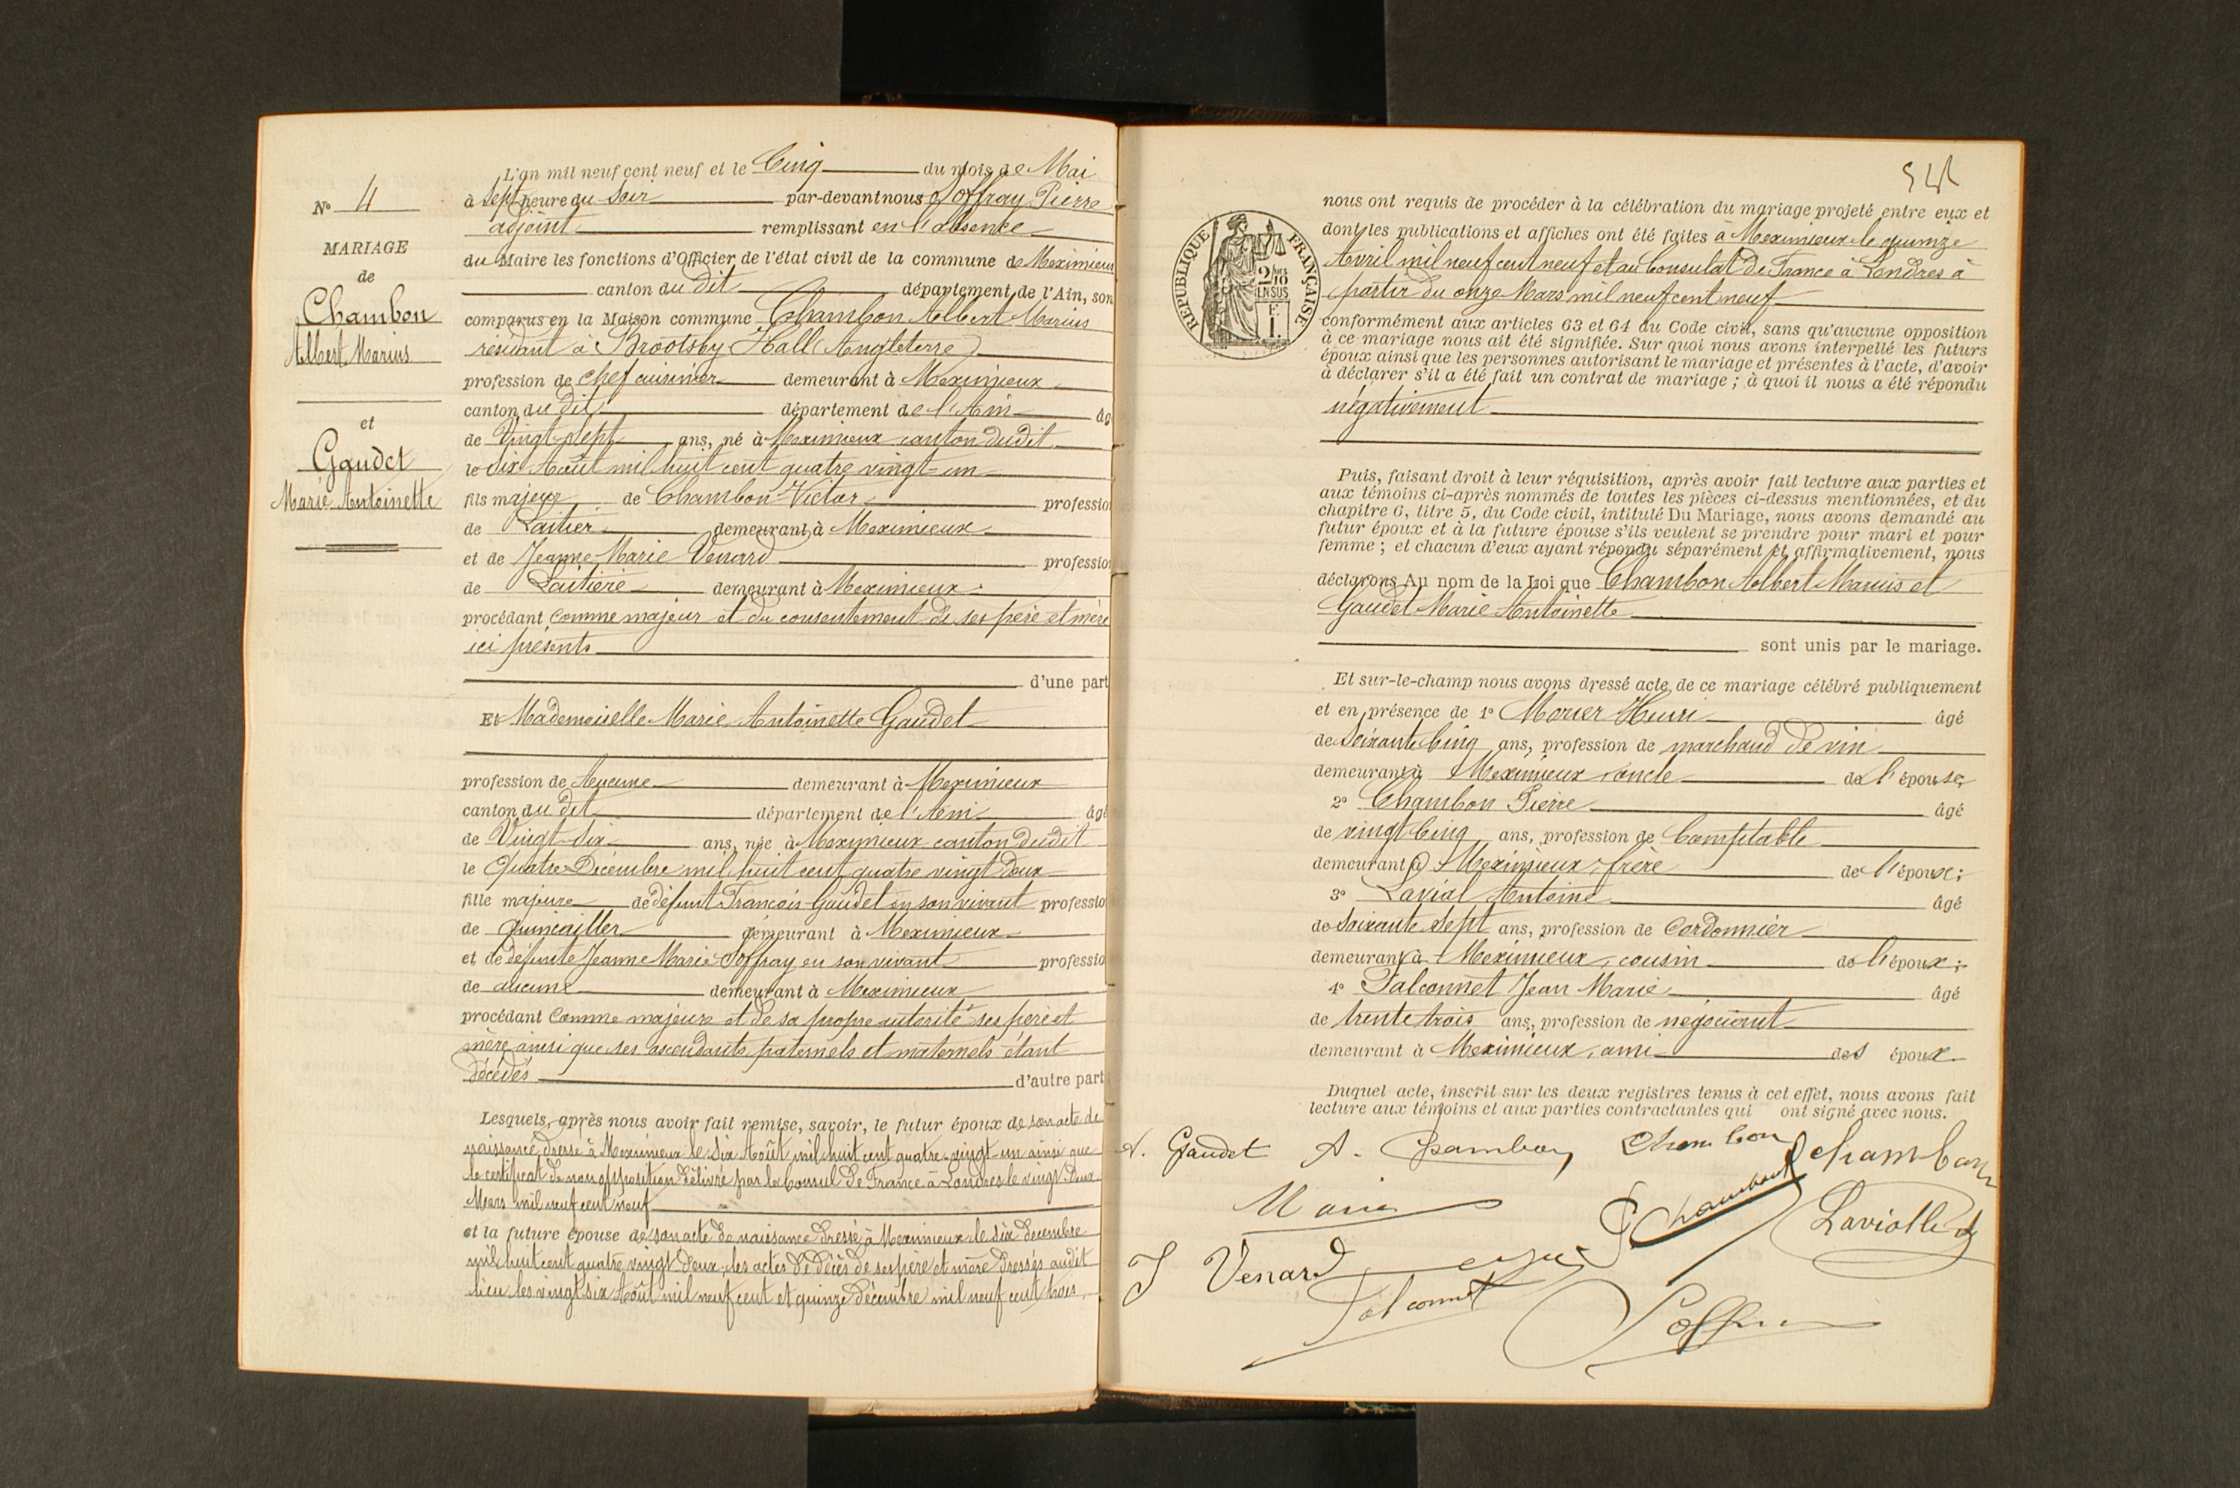 L'an mil neuf cent neuf et le Cinq du mois de Mai
à Sept heure du Soir par-devant nous Soffray Pierre
adjoint remplissant en l'absence
du Maire les fonctions d'Officier de l'état civil de la commune de Meximieux
canton du dit département de l'Ain, son
comparus en la Maison commune Chambon Albert Marius
résidant à Brootsby Hall (Angleterre)
profession de chef cuisinier demeurant à Meximieux
canton du dit département de l'Ain âg
de Vingt-sept ans, né à Meximieux canton dudit
le dix Août mil huit cent quatre vingt-un
fils majeur de Chambon Victor professio
de Laitier demeurant à Meximieux
et de Jeanne Marie Venard professio
de Laitière demeurant à Meximieux
procédant comme majeur et du consentement de ses père et mère
ici présents
d'une part
Et Mademoiselle Marie Antoinette Gaudet
profession de Aucune demeurant à Meximieux
canton du dit département de l'Ain âgé
de Vingt-Six ans, née à Meximieux canton dudit
le Quatre Décembre mil huit cent quatre vingt deux
fille majeure de défunt François Gaudet en son vivant professio
de quincailler demeurant à Meximieux
et de défunte Jeanne Marie Soffray en son vivant professio
de aucune demeurant à Meximieux
procédant comme majeure et de sa propre autorité ses père et
mère ainsi que ses ascendants paternels et maternels étant
décédés d'autre part
Lesquels, après nous avoir fait remise, savoir, le futur époux de son acte de
naissance dressé à Meximieux le dix Août mil huit cent quatre-vingt-un ainsi que
le certificat de non opposition délivré par le Consul de France à Londres le vingt deux
Mars mil neuf cent neuf
et la future épouse de son acte de naissance dressé à Meximieux le six décembre
mil huit cent quatre vingt deux, les actes de décès de ses père et mère dressés audit
lieu les vingt six Août mil neuf cent et quinze décembre mil neuf cent trois,
N° 4
MARIAGE
de
Chambon
Albert Marius
et
Gaudet
Marie Antoinette
RÉPUBLIQUE FRANÇAISE
2/10
EN SUS
F.
1.
nous ont requis de procéder à la célébration du mariage projeté entre eux et
dont les publications et affiches ont été faites à Meximieux le quinze
Avril mil neuf cent neuf et au Consulat de France à Londres à
partir du onze Mars mil neuf cent neuf
conformément aux articles 63 et 64 du Code civil, sans qu'aucune opposition
à ce mariage nous ait été signifiée. Sur quoi nous avons interpellé les futurs
époux ainsi que les personnes autorisant le mariage et présentes à l'acte, d'avoir
à déclarer s'il a été fait un contrat de mariage ; à quoi il nous a été répondu
négativement
Puis, faisant droit à leur réquisition, après avoir fait lecture aux parties et
aux témoins ci-après nommés de toutes les pièces ci-dessus mentionnées, et du
chapitre 6, titre 5, du Code civil, intitulé Du Mariage, nous avons demandé au
futur époux et à la future épouse s'ils veulent se prendre pour mari et pour
femme ; et chacun d'eux ayant répondu séparément et affirmativement, nous
déclarons Au nom de la Loi que Chambon Albert Marius et
Gaudet Marie Antoinette
sont unis par le mariage.
Et sur-le-champ nous avons dressé acte de ce mariage célébré publiquement
et en présence de 1° Morier Henri âgé
de Soixante Cinq ans, profession de marchand de vin
demeurant à Meximieux oncle de l'épouse
2° Chambon Pierre âgé
de vingt Cinq ans, profession de Comptable
demeurant à Meximieux, frère de l'époux ;
3° Lavial Antoine âgé
de Soixante Sept ans, profession de Cordonnier
demeurant à Meximieux, cousin de l'époux ;
4° Falconnet Jean Marie âgé
de trente trois ans, profession de négociant
demeurant à Meximieux, ami des époux.
Duquel acte, inscrit sur les deux registres tenus à cet effet, nous avons fait
lecture aux témoins et aux parties contractantes qui ont signé avec nous.
A. Gaudet A. Chambon Chambon Chambon
P. Chambon
J Venard
Falconnet